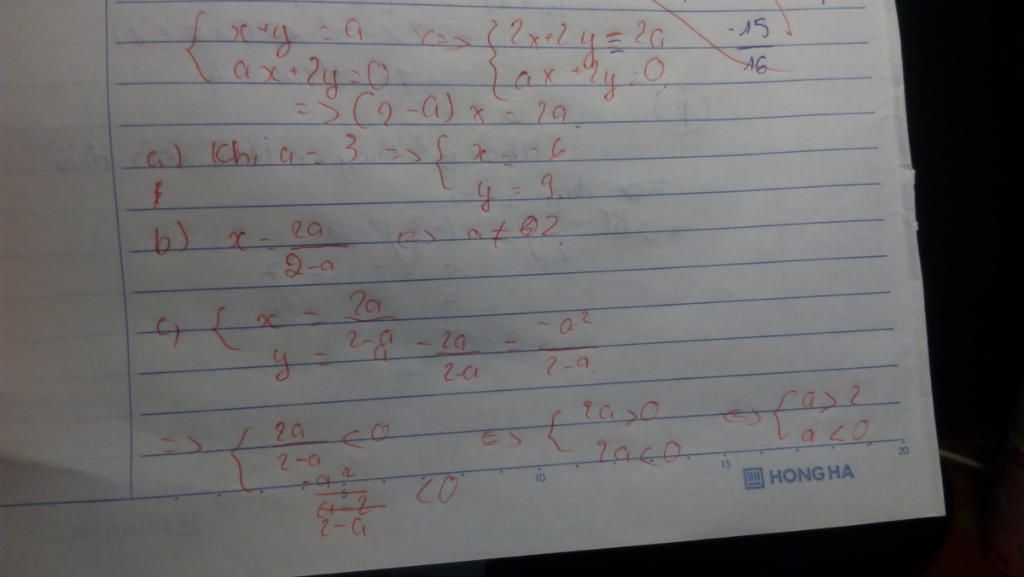 { x+y = a <=> { 2x+2y = 2a
{ ax+2y=0 { ax+2y=0
-15/16
=> (2-a) x = 2a
a) Khi a = 3 => { x = -6
{ y = 9
b) x = 2a/2-a <=> a ≠ 2
c, { x = 2a/2-a
{ y = a - 2a/2-a = -a²/2-a
=> { 2a/2-a < 0 <=> { 2a>0 <=> { a>2
{ -a²/2-a < 0 { 2a<0 { a<0
10 15 20
HONG HA